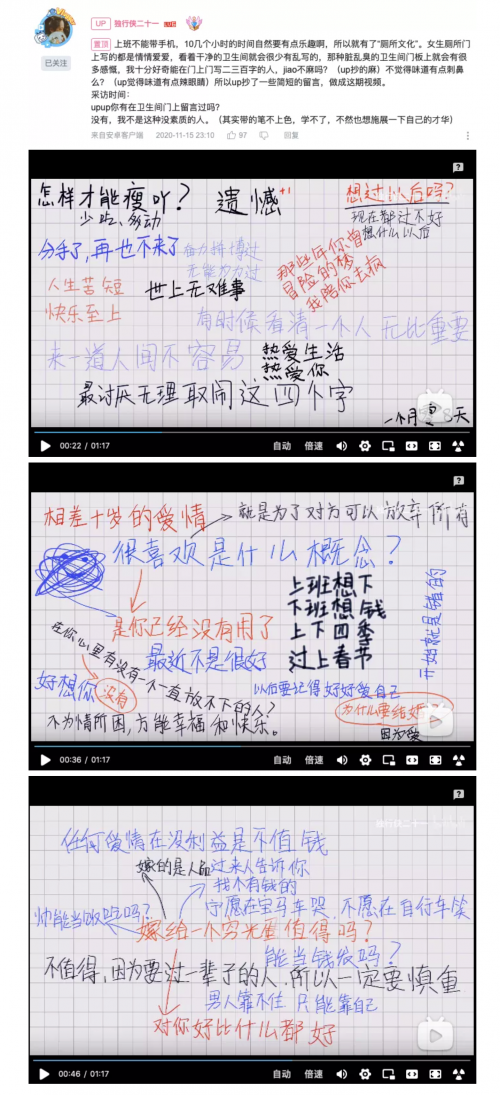 UP 独行侠二十一
已关注
置顶 上班不能带手机，10几个小时的时间自然要有点乐趣啊，所以就有了“厕所文化”。女生厕所门
上写的都是情情爱爱，看着干净的卫生间就会很少有乱写的，那种脏乱臭的卫生间门板上就会有很
多感慨，我十分好奇能在门上门写二三百字的人，jiao不麻吗？（up抄的麻）不觉得味道有点刺鼻
么？（up觉得味道有点辣眼睛）所以up抄了一些简短的留言，做成这期视频。
采访时间：
upup你有在卫生间门上留言过吗？
没有，我不是这种没素质的人。（其实带的笔不上色，学不了，不然也想施展一下自己的才华）
来自安卓客户端 2020-11-15 23:10 97 回复
怎样才能瘦吖？
少吃、多动
遗憾+1
想过以后吗？
现在都过不好
想什么以后
分手了，再也不来了
奋力拼搏过
无能为力过
那些年你曾
冒险的梦
我陪你去疯
人生苦短
快乐至上
世上无难事
有时候看清一个人无比重要
来一道人间不容易
热爱生活
热爱你
最讨厌无理取闹这四个字
一个月 8天
00:22 / 01:17 自动 倍速
相差十岁的爱情
就是为了对方可以放弃所有
很喜欢是什么概念？
是你已经没有用了
上班想下
下班想钱
上下四季
过上春节
开始就是错的
在你心里有没有一个一直放不下的人？
最近不是很好
好想你
没有
以后要记得好好爱自己
为什么要结婚
因为爱
不为情所困，方能幸福和快乐。
00:36 / 01:17 自动 倍速
独行侠二十一
任何爱情在没利益是不值钱
嫁的是人品
过来人告诉你
找个有钱的
宁愿在宝马车哭，不愿在自行车笑
帅能当饭吃吗？
嫁给一个穷光蛋值得吗？
能当钱花吗？
不值得，因为要过一辈子的人，所以一定要慎重
男人靠不住 只能靠自己
对你好比什么都好
00:46 / 01:17 自动 倍速